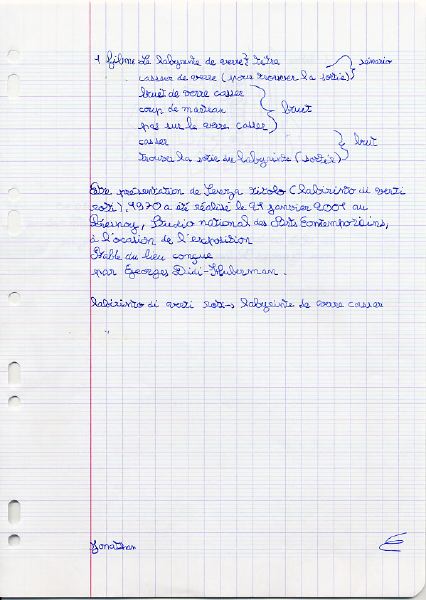 1 filme Le labyrinte de verre? titre
casser de verre (pour trouver la sortie) } sénario
bruit de verre casser
coup de marteau } bruit
pas sur le verre casser)
casser } brut
trouver la sotie du labyrinte (sortie)
présentation de Senza titolo (labirinto di vertri
roti), 1970 a été réalisé le 21 janvier 2001 au
Fresnoy, Studio national des Arts Contemporains,
à l'ocation de l'exposition
Fable du lieu conçue
par Georges Didi-Huberman.
labirinto di vertri roti → labyrinte de verre casser
Jonathan